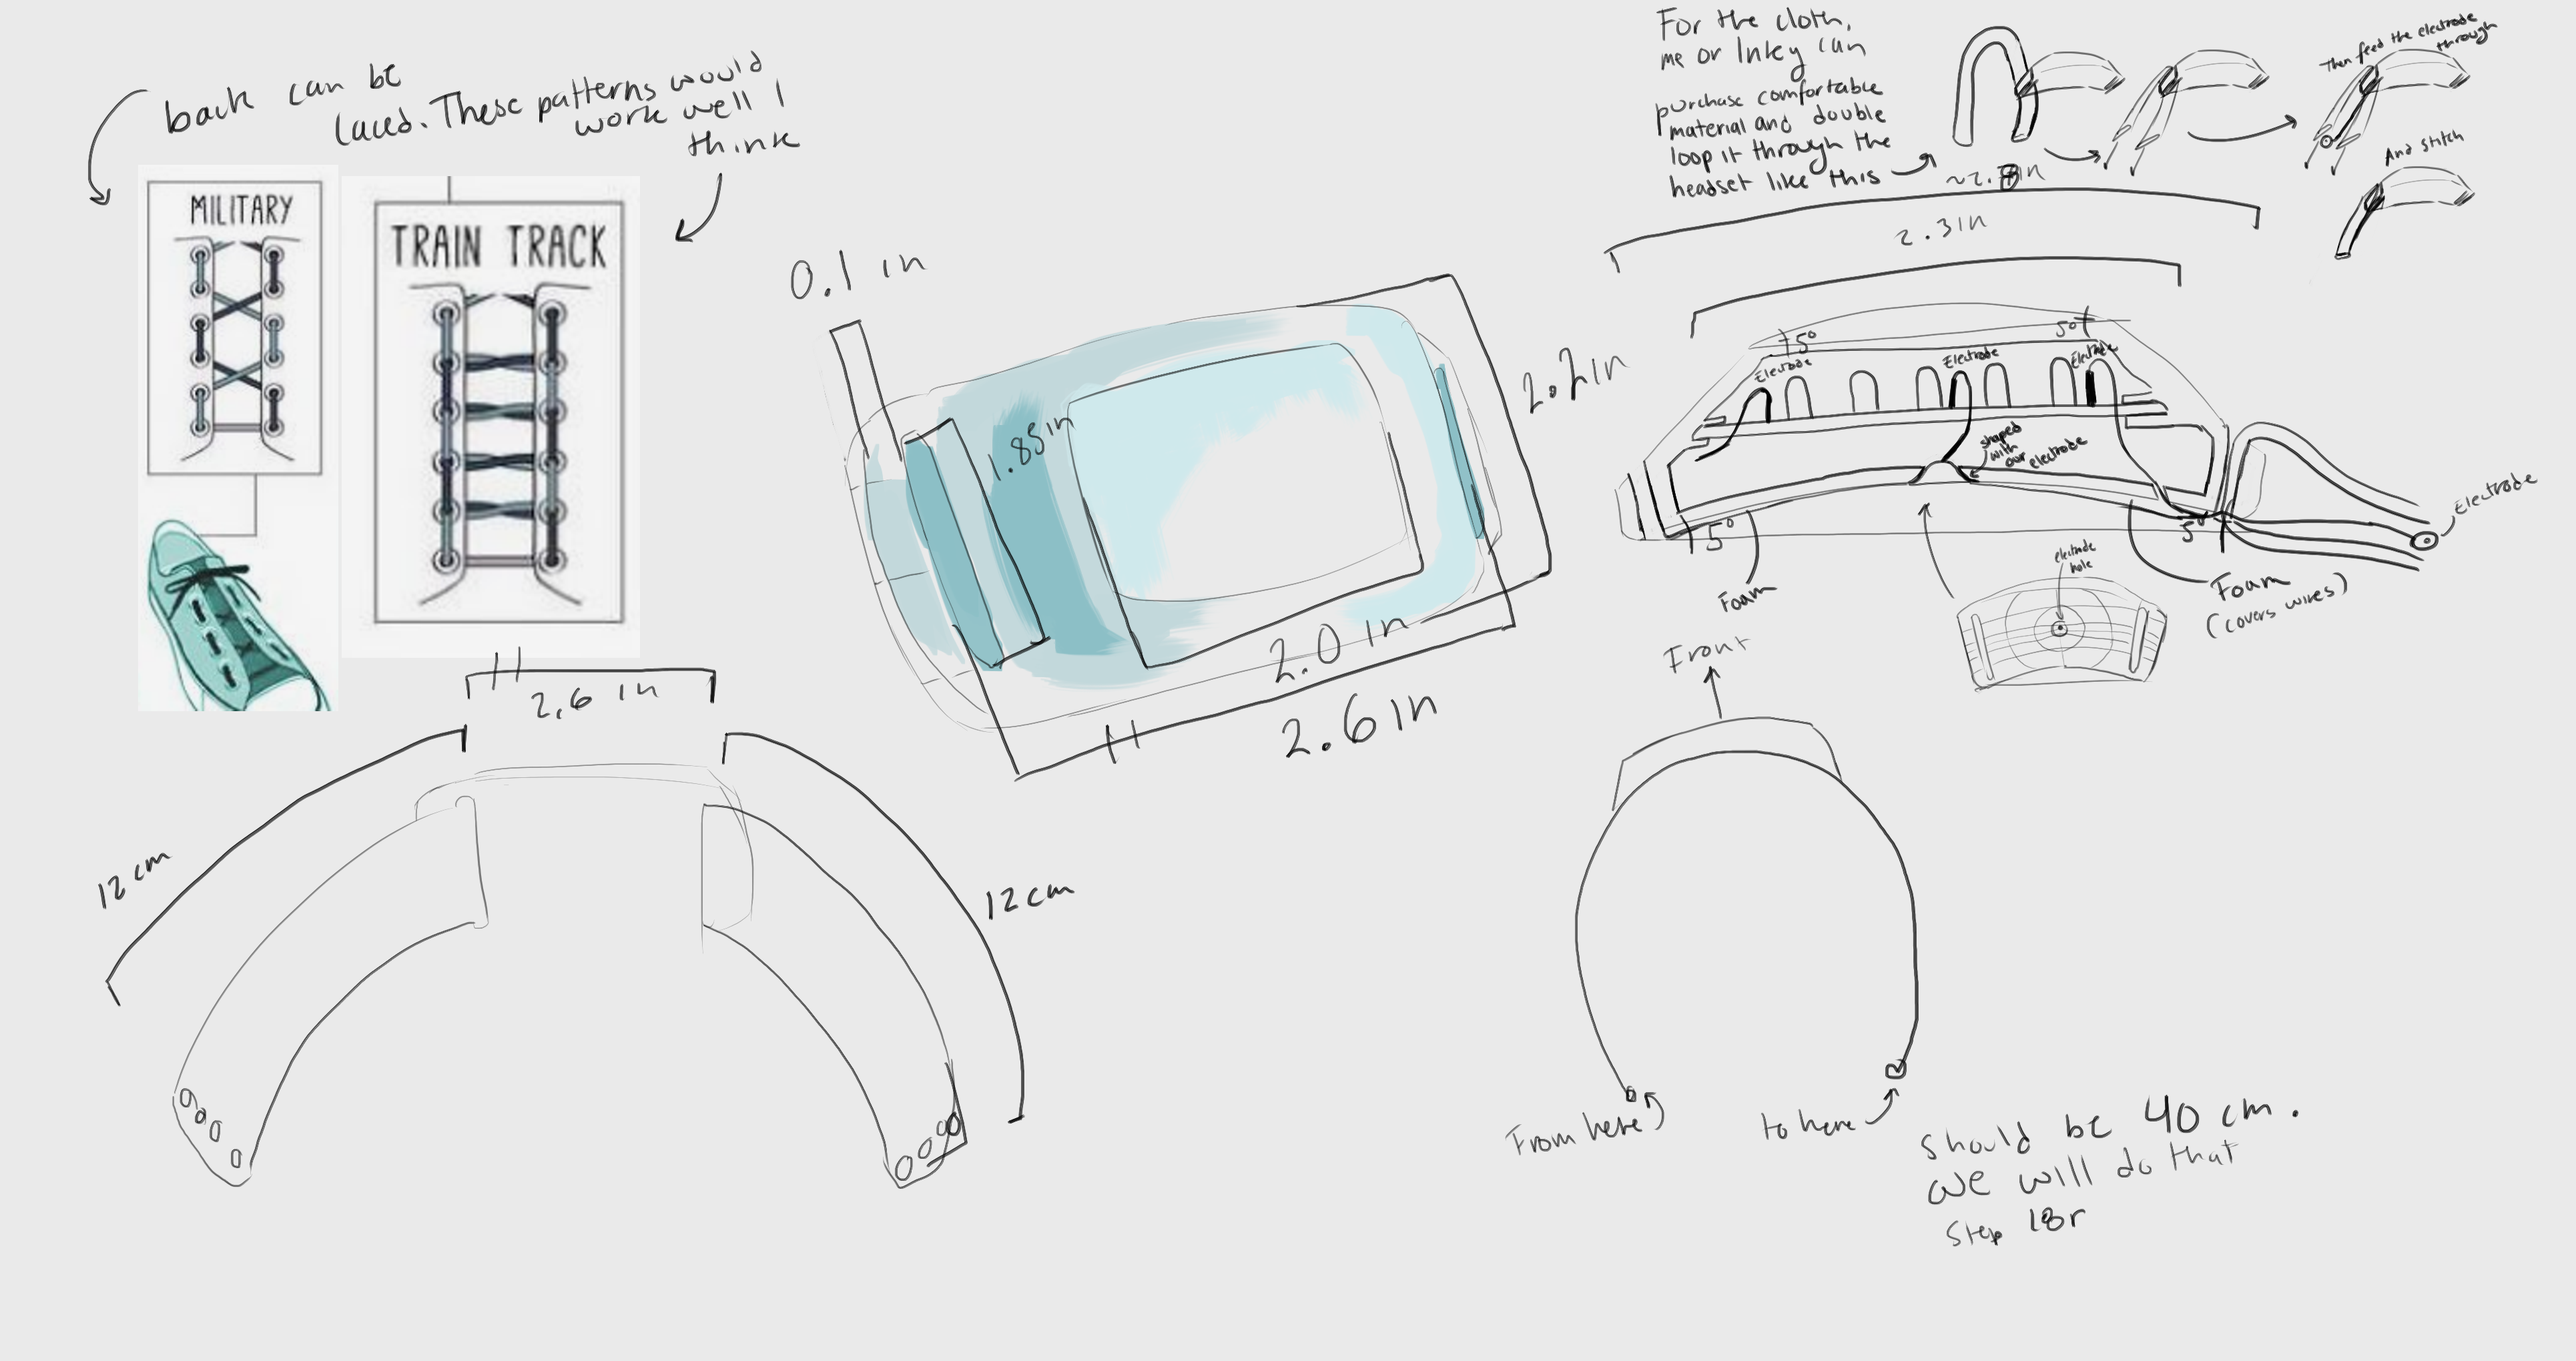 back can be
laced. These patterns would
work well I
think
MILITARY
TRAIN TRACK
0.1 in
1.85in
2.2in
2.0 in
2.6 in
For the cloth,
me or Inky can
purchase comfortable
material and double
loop it through the
headset like this
Then feed the electrode
through
And stitch
2.3in
5°
5°
Electrode
Electrode
Electrode
shaped
with
our
electrode
5°
5°
Electrode
Foam
electrode
hole
Foam
(covers wires)
2.6 in
12 cm
12 cm
Front
From here
to here
should be 40 cm.
we will do that